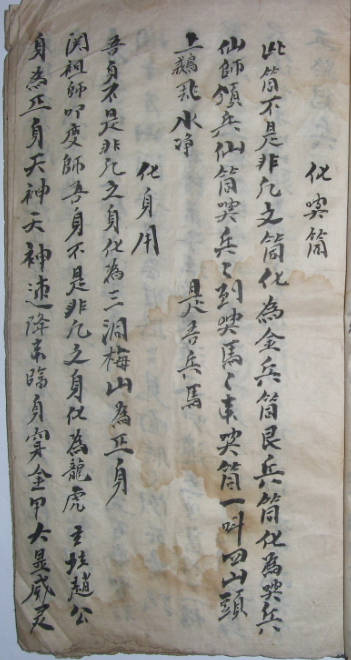 化哭筒
此筒不是非凡文筒化為金兵筒艮兵筒化為哭兵
仙師領兵仙筒哭兵〻到哭馬〻来哭筒一叫四山頭
上鵝飛水净 是吾兵馬
化身用
吾身不是非凡之身化為三洞梅山為正身
閃祖師叩度師吾身不是非凡之身化為龍虎玄壇趙公
身為正身天神天神速降来臨身穿金甲大显威灵